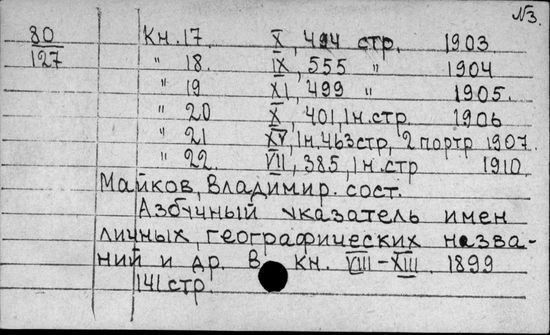 №3.
80 Кн. 17. X, 494 стр. 1903.
127 " 18. IX, 555 " 1904
" 19 XI, 499 " 1905.
" 20 X, 401, 1н. стр. 1906
" 21 XV, 1н. 463 стр, 2 портр 1907.
" 22. VII, 385, 1н. стр 1910.
Майков, Владимир. сост.
Азбучный указатель имен
личных, географических назва-
ний и др. в кн. VIII–XIII. 1899
141 стр.